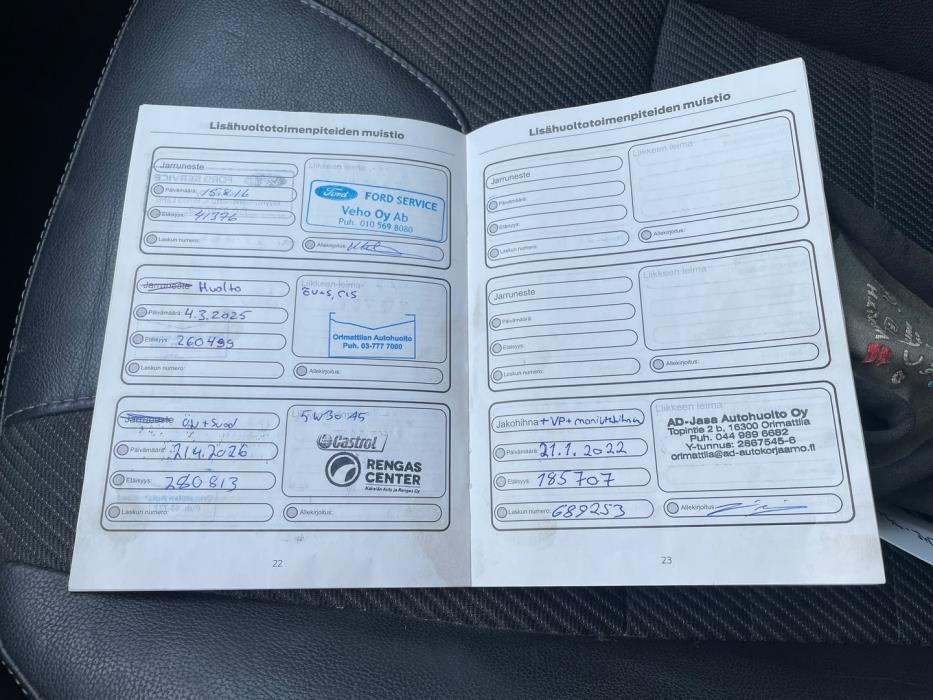 Lisähuoltotoimenpiteiden muistio
Jarruneste
Liikkeen leima:
Päivämäärä: 15.8.16
Etäisyys: 41376
Ford FORD SERVICE
Veho Oy Ab
Puh. 010 569 8080
Laskun numero:
Allekirjoitus:
Jarruneste Huolto
Päivämäärä: 4.3.2025
Etäisyys: 260499
Orimattilan Autohuolto
Puh. 03-777 7000
Laskun numero:
Allekirjoitus:
Jarruneste
5W30 A5
Päivämäärä: 21.4.2026
Etäisyys: 280813
Castrol
RENGAS
CENTER
Käkelän Auto ja Rengas Oy
Laskun numero:
Allekirjoitus:
22
Lisähuoltotoimenpiteiden muistio
Jarruneste
Liikkeen leima:
Päivämäärä:
Etäisyys:
Laskun numero:
Allekirjoitus:
Jarruneste
Liikkeen leima:
Päivämäärä:
Etäisyys:
Laskun numero:
Allekirjoitus:
Jakohihna + VP + moniurahihna
Liikkeen leima:
Päivämäärä: 21.1.2022
Etäisyys: 185707
AD-Jasa Autohuolto Oy
Topintie 2 b, 16300 Orimattila
Puh. 044 989 6682
Y-tunnus: 2867545-6
orimattila@ad-autokorjaamo.fi
Laskun numero: 689253
Allekirjoitus:
23